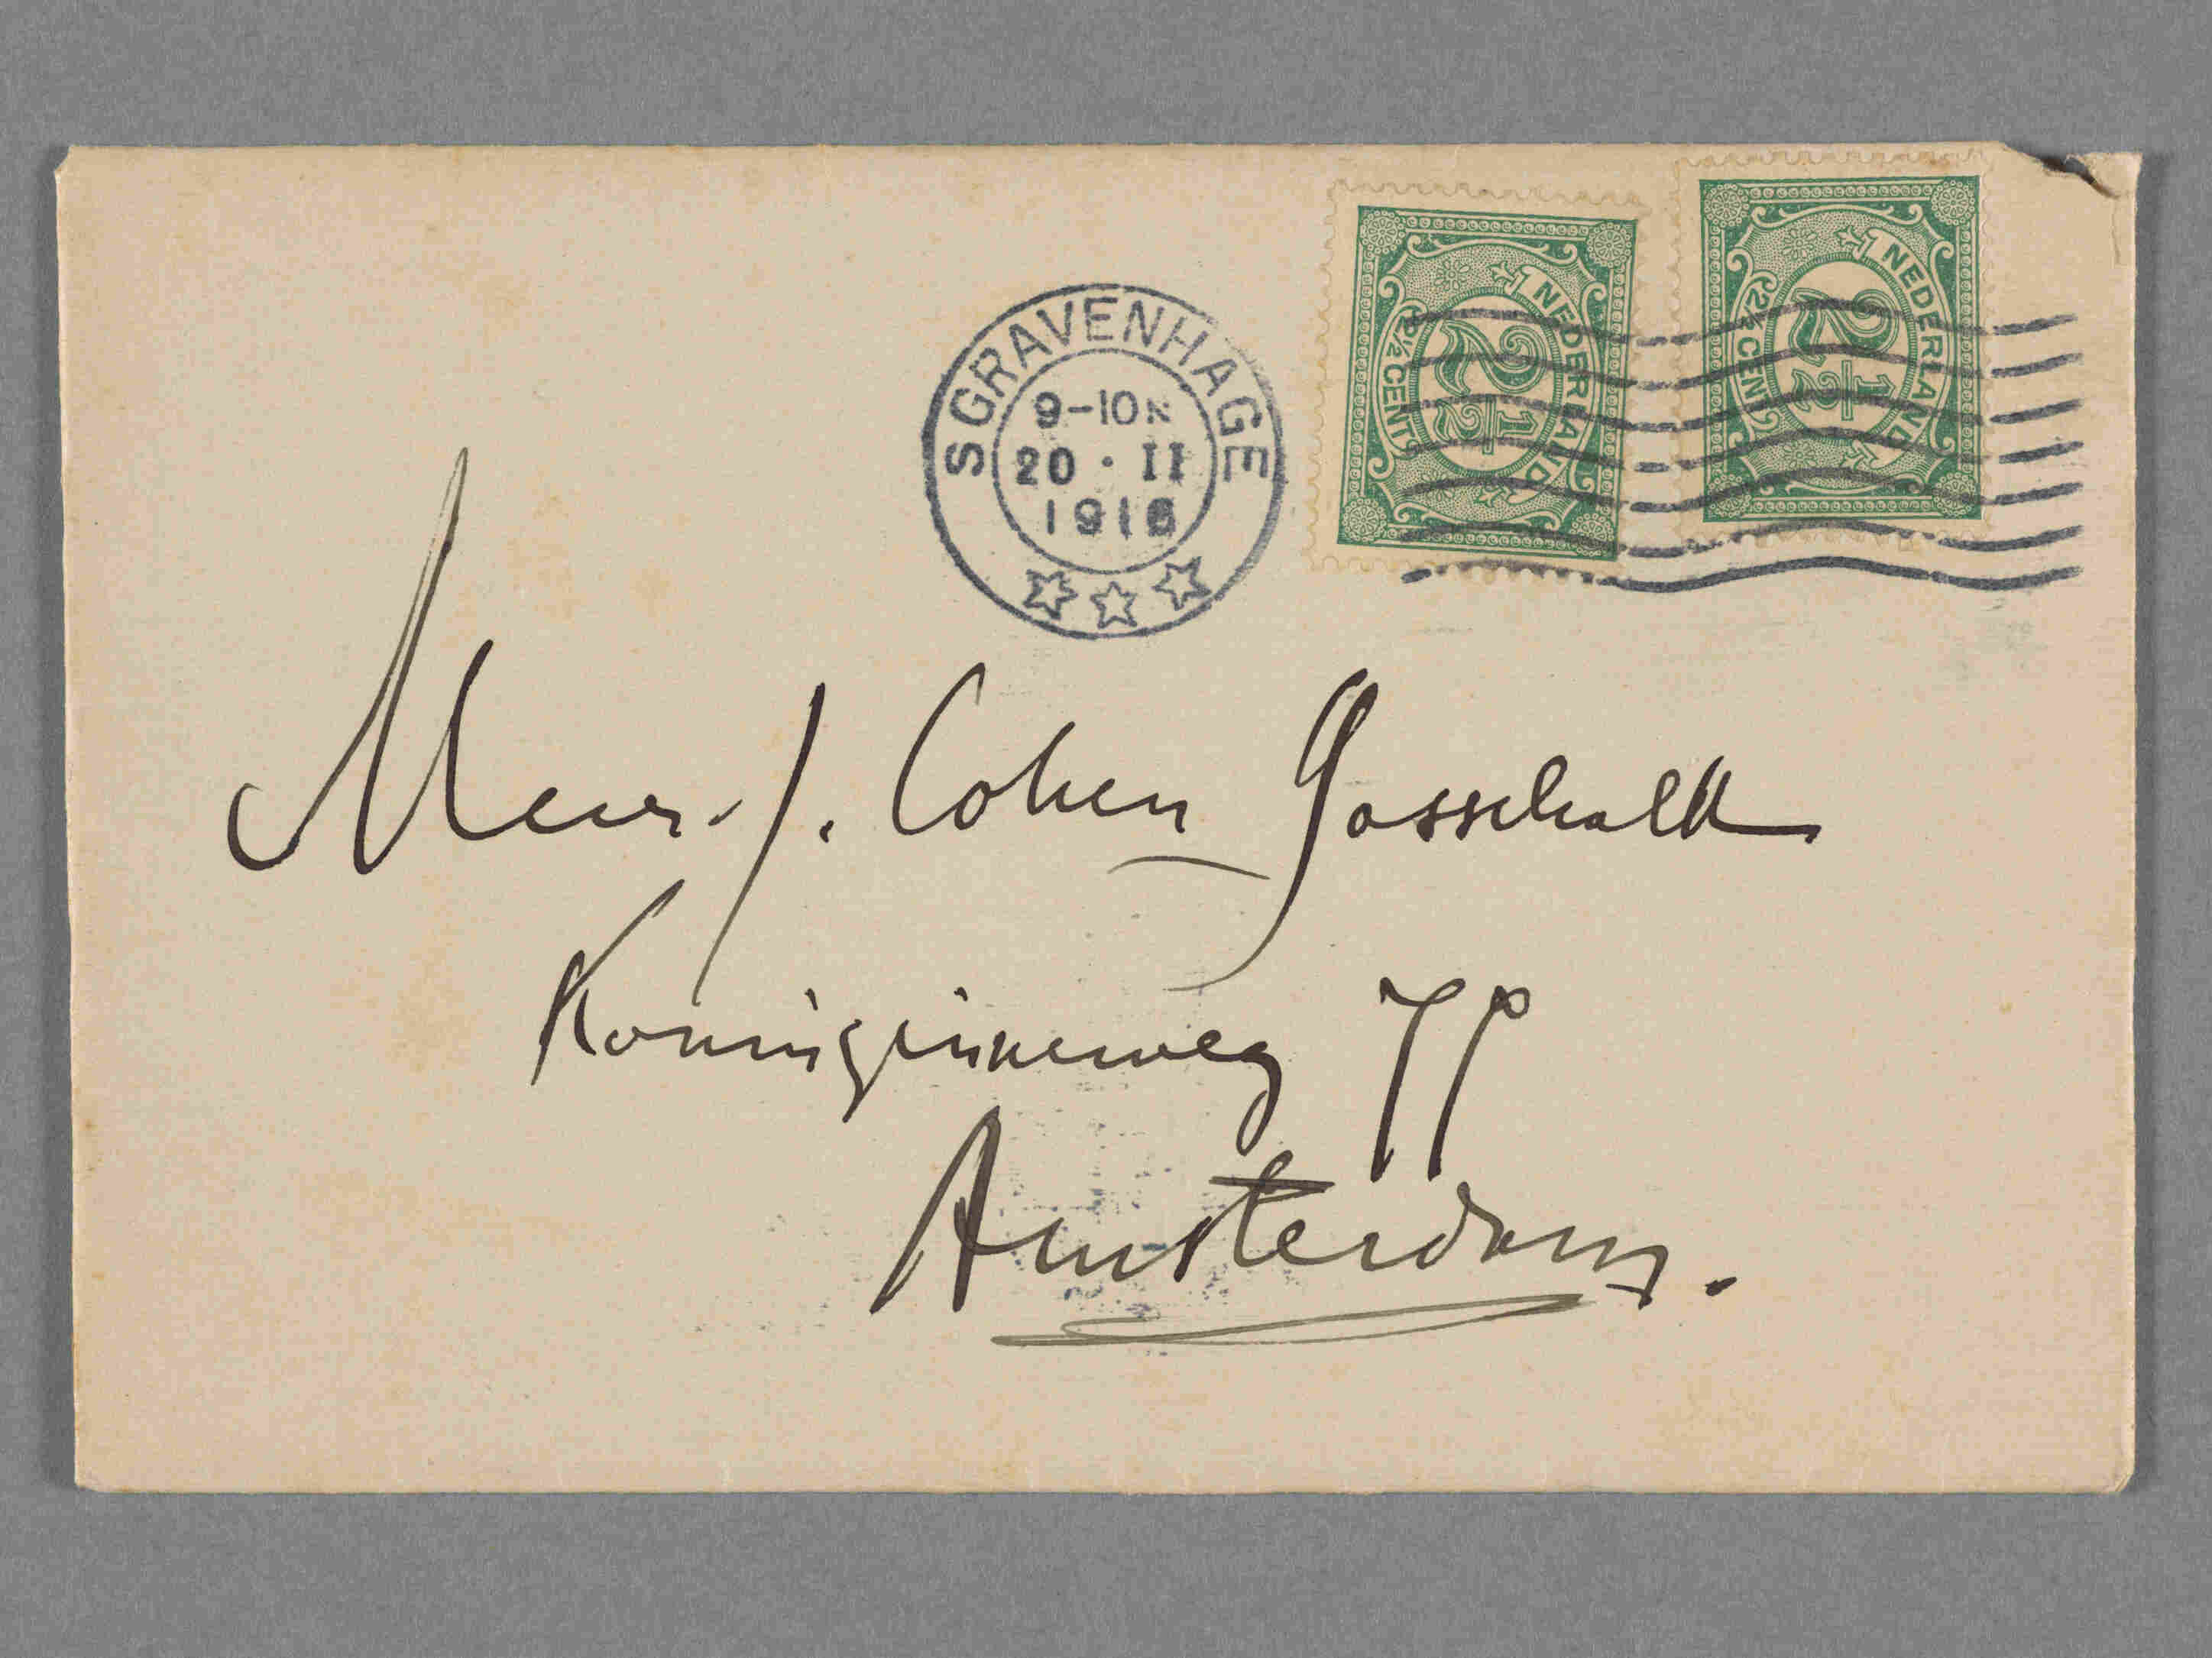 'SGRAVENHAGE
9-10N
20 · II
1916
NEDERLAND
2½
2½ CENT
NEDERLAND
2½
2½ CENT
Mevr. J. Cohen Gosschalk
Koninginneweg 77
Amsterdam.